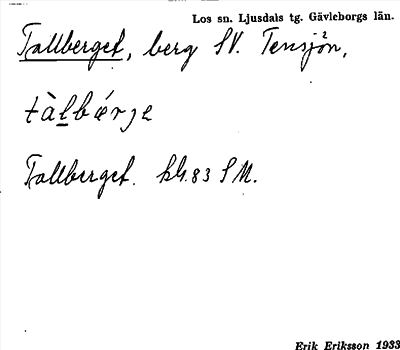 Los sn. Ljusdals tg. Gävleborgs län.
Tallberget, berg SV. Tensjön,
tàlbǽrje
Tallberget. kbl. 83 S M.
Erik Eriksson 1933